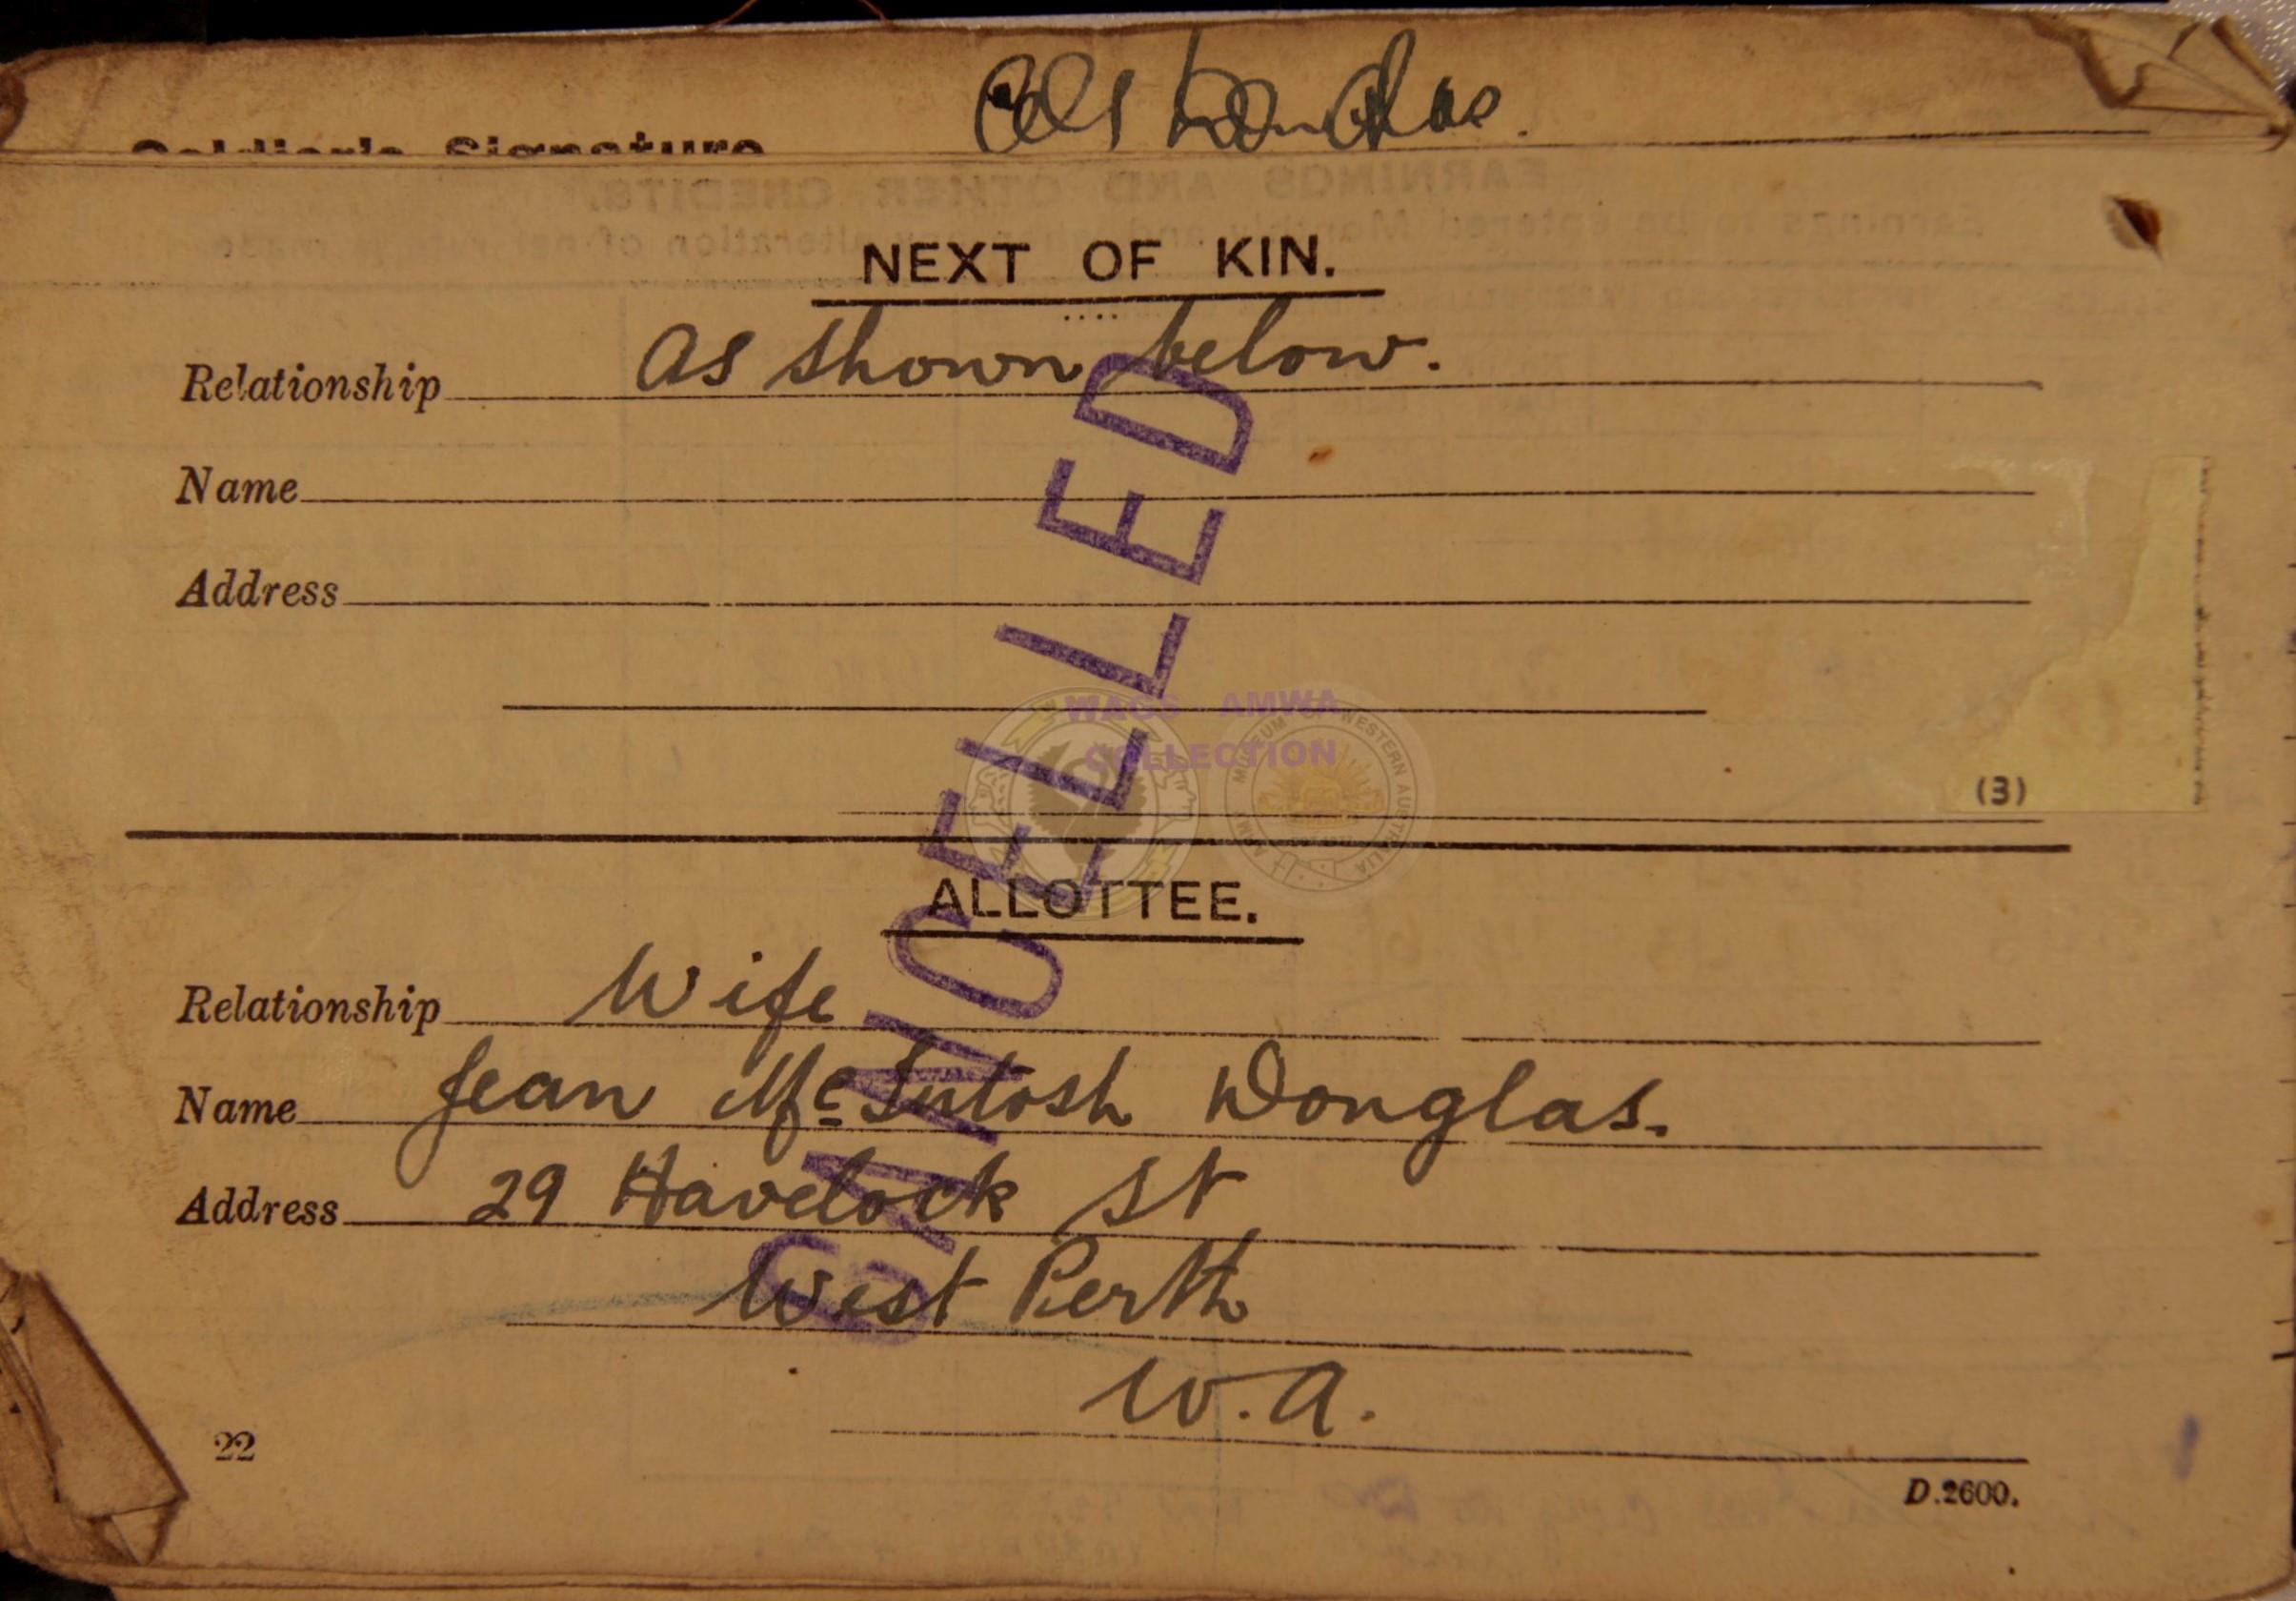 Soldier's Signature Douglas.
NEXT OF KIN.
Relationship As shown below.
Name
Address
CANCELLED
WAGS - AMWA
COLLECTION
(3)
ALLOTTEE.
Relationship Wife
Name Jean McIntosh Douglas.
Address 29 Havelock St
West Perth
W.A.
22
D.2600.